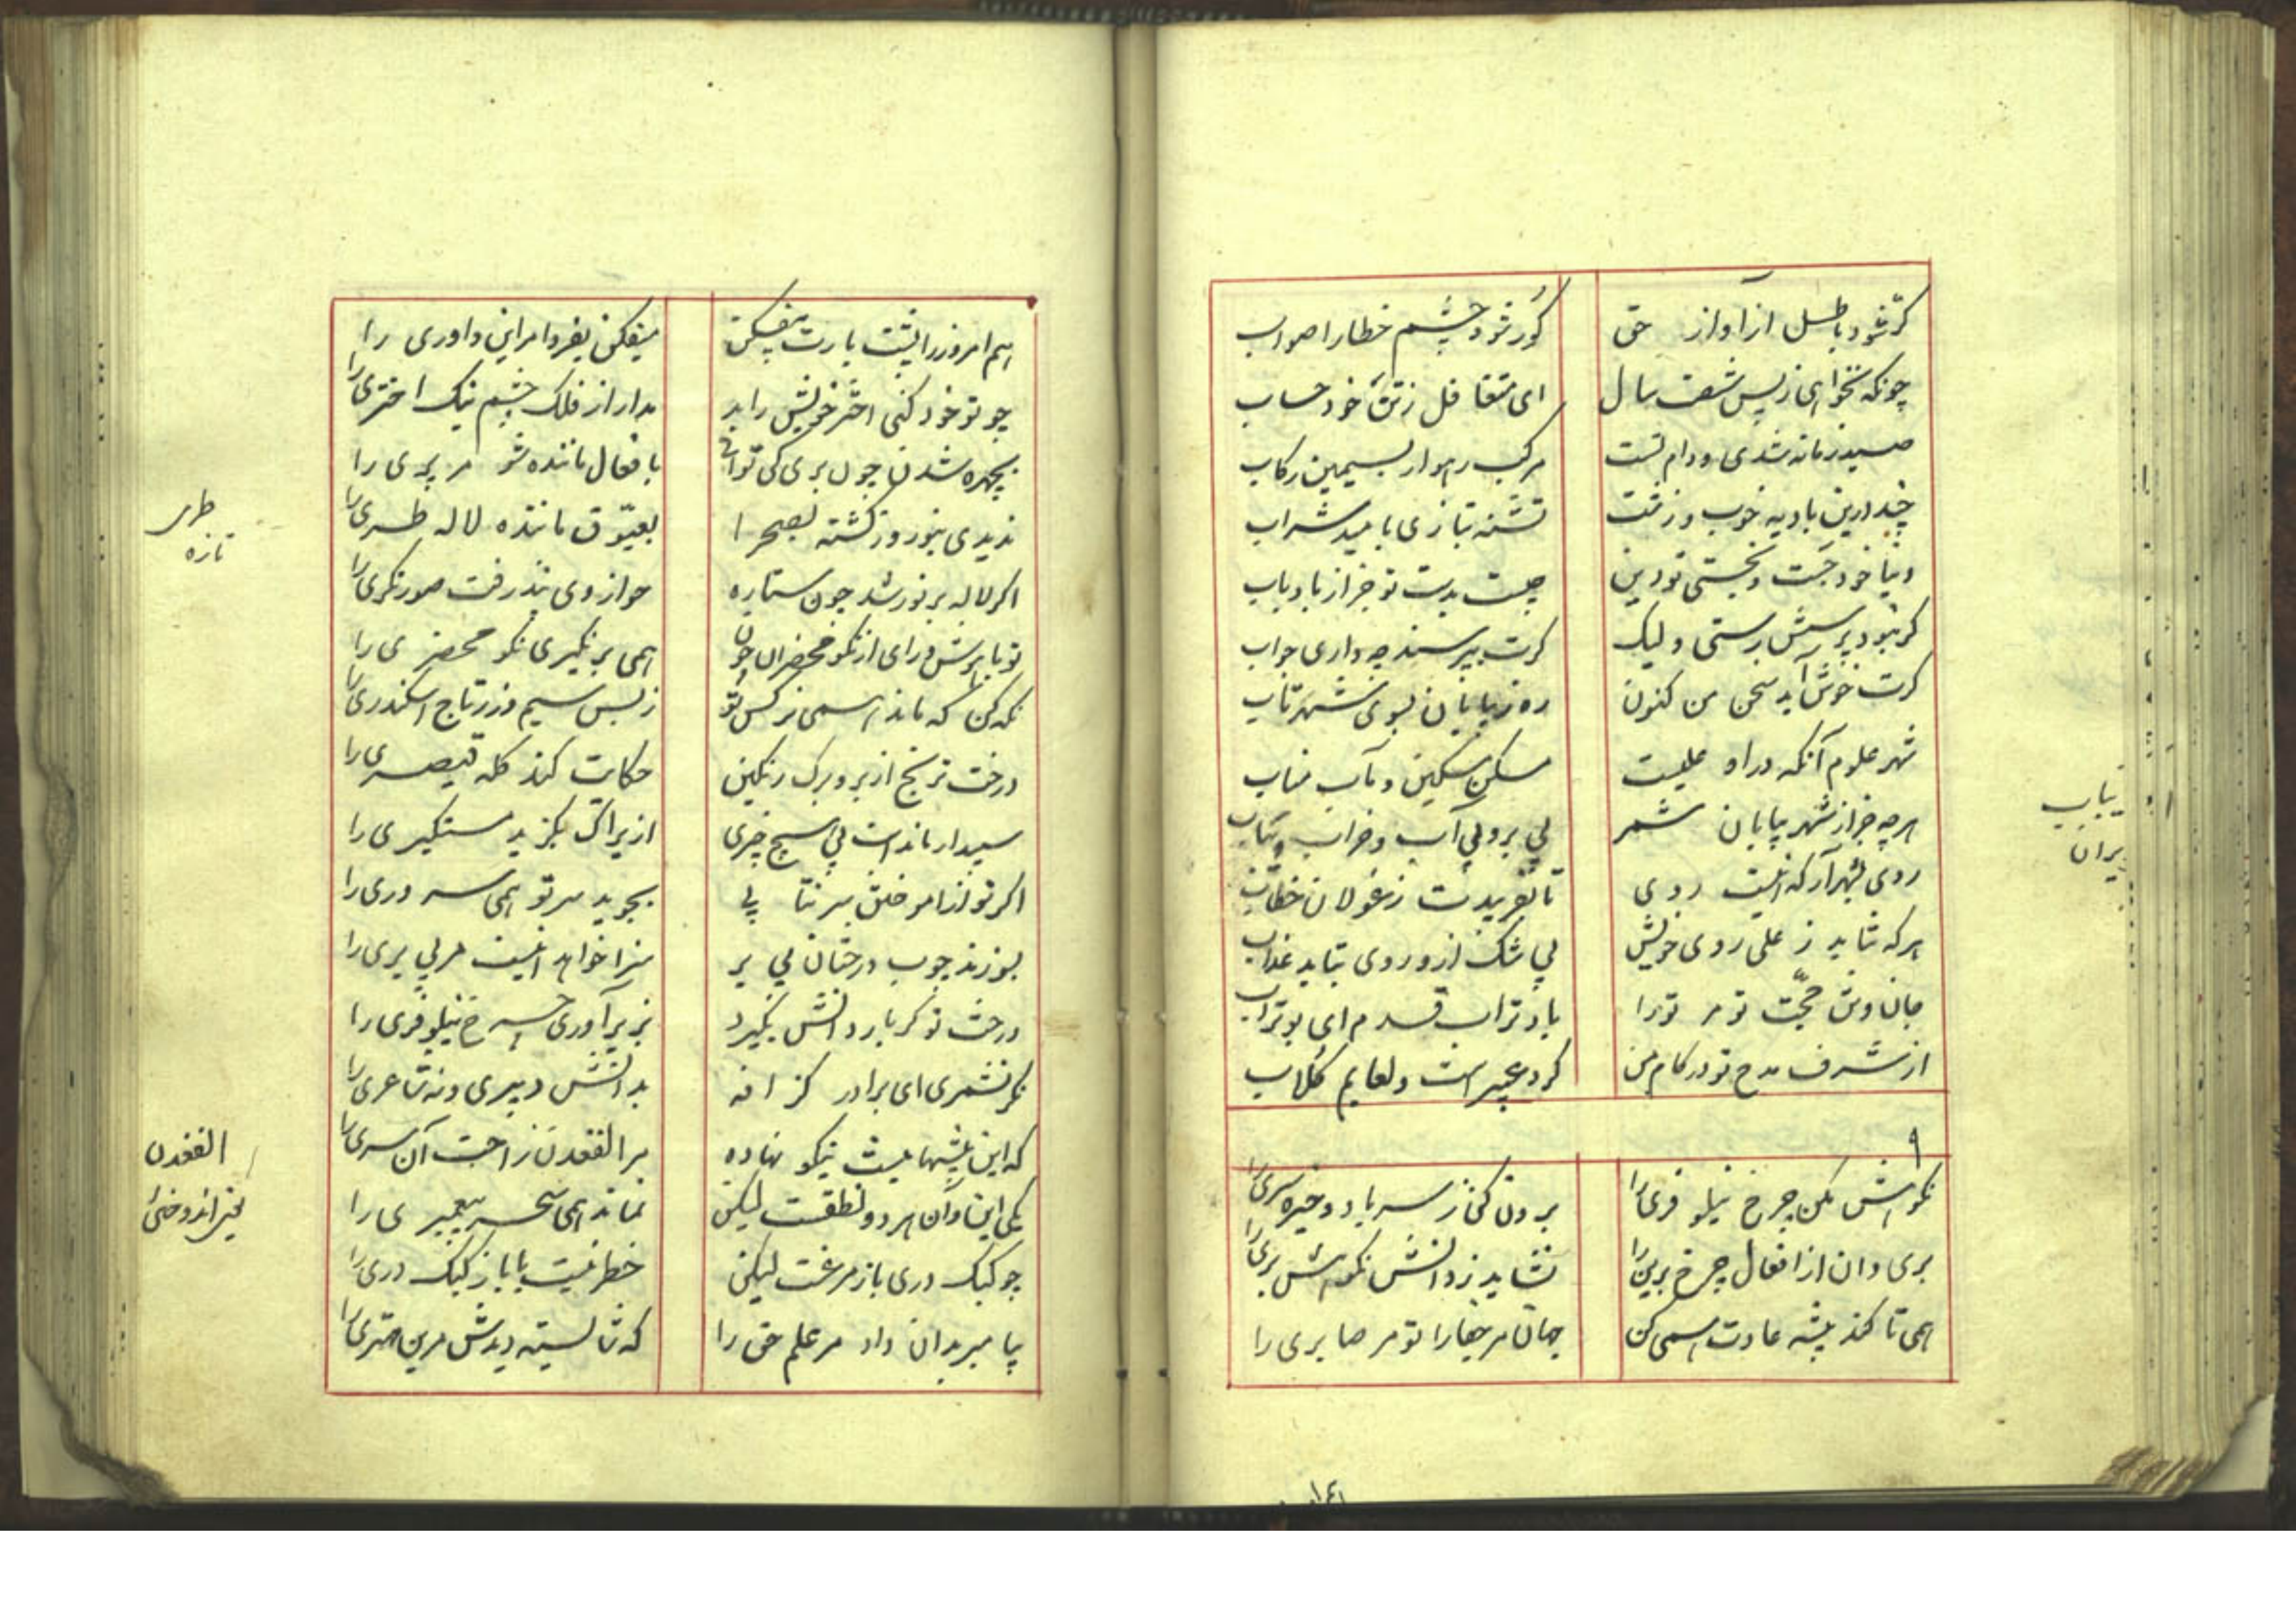 کر شود باطل از آواز حق کور شود چشم خطا را صواب
چونکه نخواهی ز پس شصت سال ای متغافل ز تن خود حساب
صید زمانه شدی و دام تست مرکب رهوار بسیمین رکاب
چند درین بادیه خوب و زشت تشنه بتازی بامید شراب
دنیا خود جست و نجستی تو دین چیست بدست تو جز از باد باب
گر نبود پرسش رستی ولیک گرت بپرسند چه داری جواب
گرت خوش آید سخن من کنون ره ز بیابان بسوی شهر تاب
شهر علوم آنکه در او علیست مسکن مسکین و مآب مناب
هر چه جز از شهر بیابان شمر بی بر و بی آب و خراب و یباب
روی بشهر آر که اینست روی تا نفریبدت ز غولان خطاب
هر که نتابد ز علی روی خویش بی شک ازو روی بتابد عذاب
جان و تن حجت تو مر ترا باد تراب قدم ای بوتراب
از شرف مدح تو در کام من گرد عبیر است و لعابم گلاب
یباب
یران
۹
نکوهش مکن چرخ نیلوفری را برون کن ز سر باد و خیره سری را
بری دان از افعال چرخ برین را نشاید ز دانش نکوهش بری را
همی تا کند پیشه عادت همی کن جهان مر جفا را تو مر صابری را
هم امروز از پشت بارت بیفکن میفکن بفردا مر این داوری را
چو تو خود کنی اختر خویش را بد مدار از فلک چشم نیک اختری را
بچهره شدن چون پری کی توانی بافعال ماننده شو مر پری را
ندیدی بنوروز گشته بصحرا بعیوق ماننده لاله طری را
اگر لاله پر نور شد چون ستاره جز از وی نپذرفت صورتگری را
تو با هوش و رای از نکو محضران چون همی بر نگیری نکو محضری را
نگه کن که ماند همی نرگس نو ز بس سیم و زر تاج اسکندری را
درخت ترنج از بر و برگ رنگین حکایت کند کله قیصری را
سپیدار ماندست بی هیچ چیزی ازیراک بگزید مستکبری را
اگر تو از آموختن سر نتابی بجوید سر تو همی سروری را
بسوزند چوب درختان بی بر سزا خود همینست مر بی بری را
درخت تو گر بار دانش بگیرد بزیر آوری چرخ نیلوفری را
نگر نشمری ای برادر گزافه بدانش دبیری و نه شاعری را
که این پیشها نیست نیکو نهاده مر الفغدن راحت آن سری را
بلی این و آن هر دو نطقست لیکن نماند همی سحر پیغمبری را
چو کبک دری باز مرغست لیکن خطر نیست با باز کبک دری را
پیامبر بدان داد مر علم حق را که شایسته دیدش مر این مهتری را
طری
تازه
الفغدن